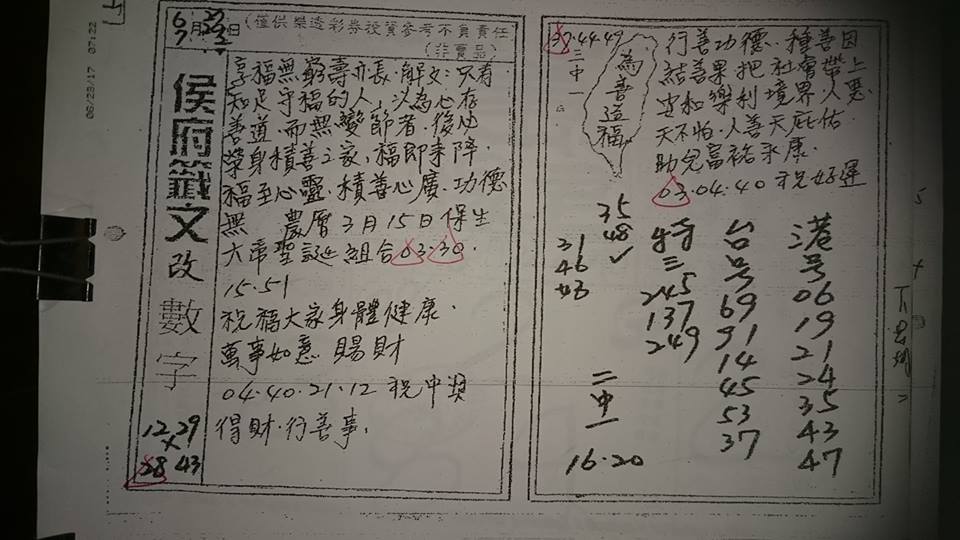 06/28/17 07:22
(僅供樂透彩券投資參考不負責任
(非賣品)
侯府籤文改數字
享福無窮壽亦長.解文:只有
知足守福的人,以為心存
善道.而無變節者.後必
榮身積善之家,福即来降.
福至心靈.積善心廣.功德
無 農曆3月15日保生
大帝聖誕組合03.30.
15.51
祝福大家身體健康.
萬事如意 賜財
04.40.21.12 祝中獎
得財.行善事.
12 29
×
28 43
37.44.49
三中一
為善造福
行善功德.種善因
結善果把社會帶上
安和樂利境界.人惡
天不怕.人善天庇佑
助兒富裕永康.
03.04.40 祝好運
港号
06
19
21
24
35
43
47
台号
69
91
14
45
53
37
特三
245
137
249
35
48 ✓
31
46
43
二中一
16.20